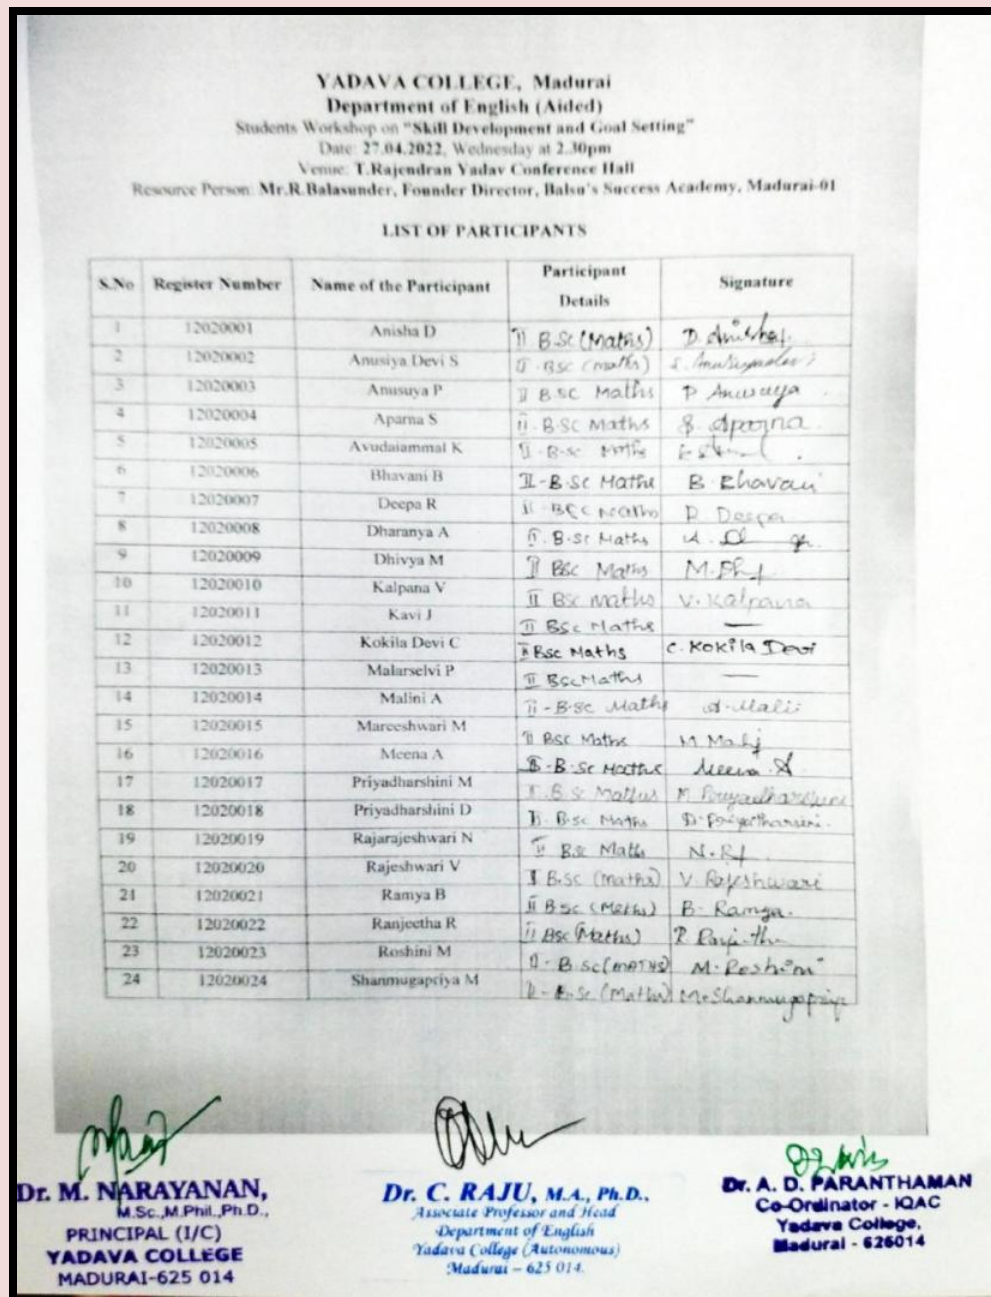 YADAVA COLLEGE, Madurai
Department of English (Aided)
Students Workshop on "Skill Development and Goal Setting"
Date: 27.04.2022, Wednesday at 2.30pm
Venue: T.Rajendran Yadav Conference Hall
Resource Person: Mr.R.Balasunder, Founder Director, Balsu's Success Academy, Madurai-01
LIST OF PARTICIPANTS
S.No Register Number Name of the Participant Participant Details Signature
1 12020001 Anisha D II B.Sc (Maths) D.
2 12020002 Anusiya Devi S II - BSC (maths) S. Anusiyadevi
3 12020003 Anusuya P II B.SC Maths P Anusuya
4 12020004 Aparna S II - B.SC Maths S. Aparna
5 12020005 Avudaiammal K II - B.sc Maths
6 12020006 Bhavani B II - B.Sc Maths B. Bhavani
7 12020007 Deepa R II - BSC Maths R. Deepa
8 12020008 Dharanya A II. B.Sc Maths A.
9 12020009 Dhivya M II Bsc Maths M.
10 12020010 Kalpana V II Bsc Maths V. Kalpana
11 12020011 Kavi J II BSc Maths —
12 12020012 Kokila Devi C II Bsc Maths C. Kokila Devi
13 12020013 Malarselvi P II Bsc Maths —
14 12020014 Malini A II - B.sc Maths A.
15 12020015 Mareeshwari M II Bsc Maths M
16 12020016 Meena A II - B.Sc Maths Meena. A
17 12020017 Priyadharshini M II. B.Sc Maths M. Priyadharshini
18 12020018 Priyadharshini D II. B.sc Maths D.
19 12020019 Rajarajeshwari N II B.sc Maths N.
20 12020020 Rajeshwari V II B.sc (maths) V. Rajeshwari
21 12020021 Ramya B II B.sc (Maths) B. Ramya
22 12020022 Ranjeetha R II Bsc (Maths) R
23 12020023 Roshini M II - B.sc (MATHS) M. Roshini
24 12020024 Shanmugapriya M II - B.Sc (Maths) M. Shanmugapriya
Dr. M. NARAYANAN,
M.Sc.,M.Phil.,Ph.D.,
PRINCIPAL (I/C)
YADAVA COLLEGE
MADURAI-625 014
Dr. C. RAJU, M.A., Ph.D.,
Associate Professor and Head
Department of English
Yadava College (Autonomous)
Madurai – 625 014.
Dr. A. D. PARANTHAMAN
Co-Ordinator - IQAC
Yadava College,
Madurai - 626014